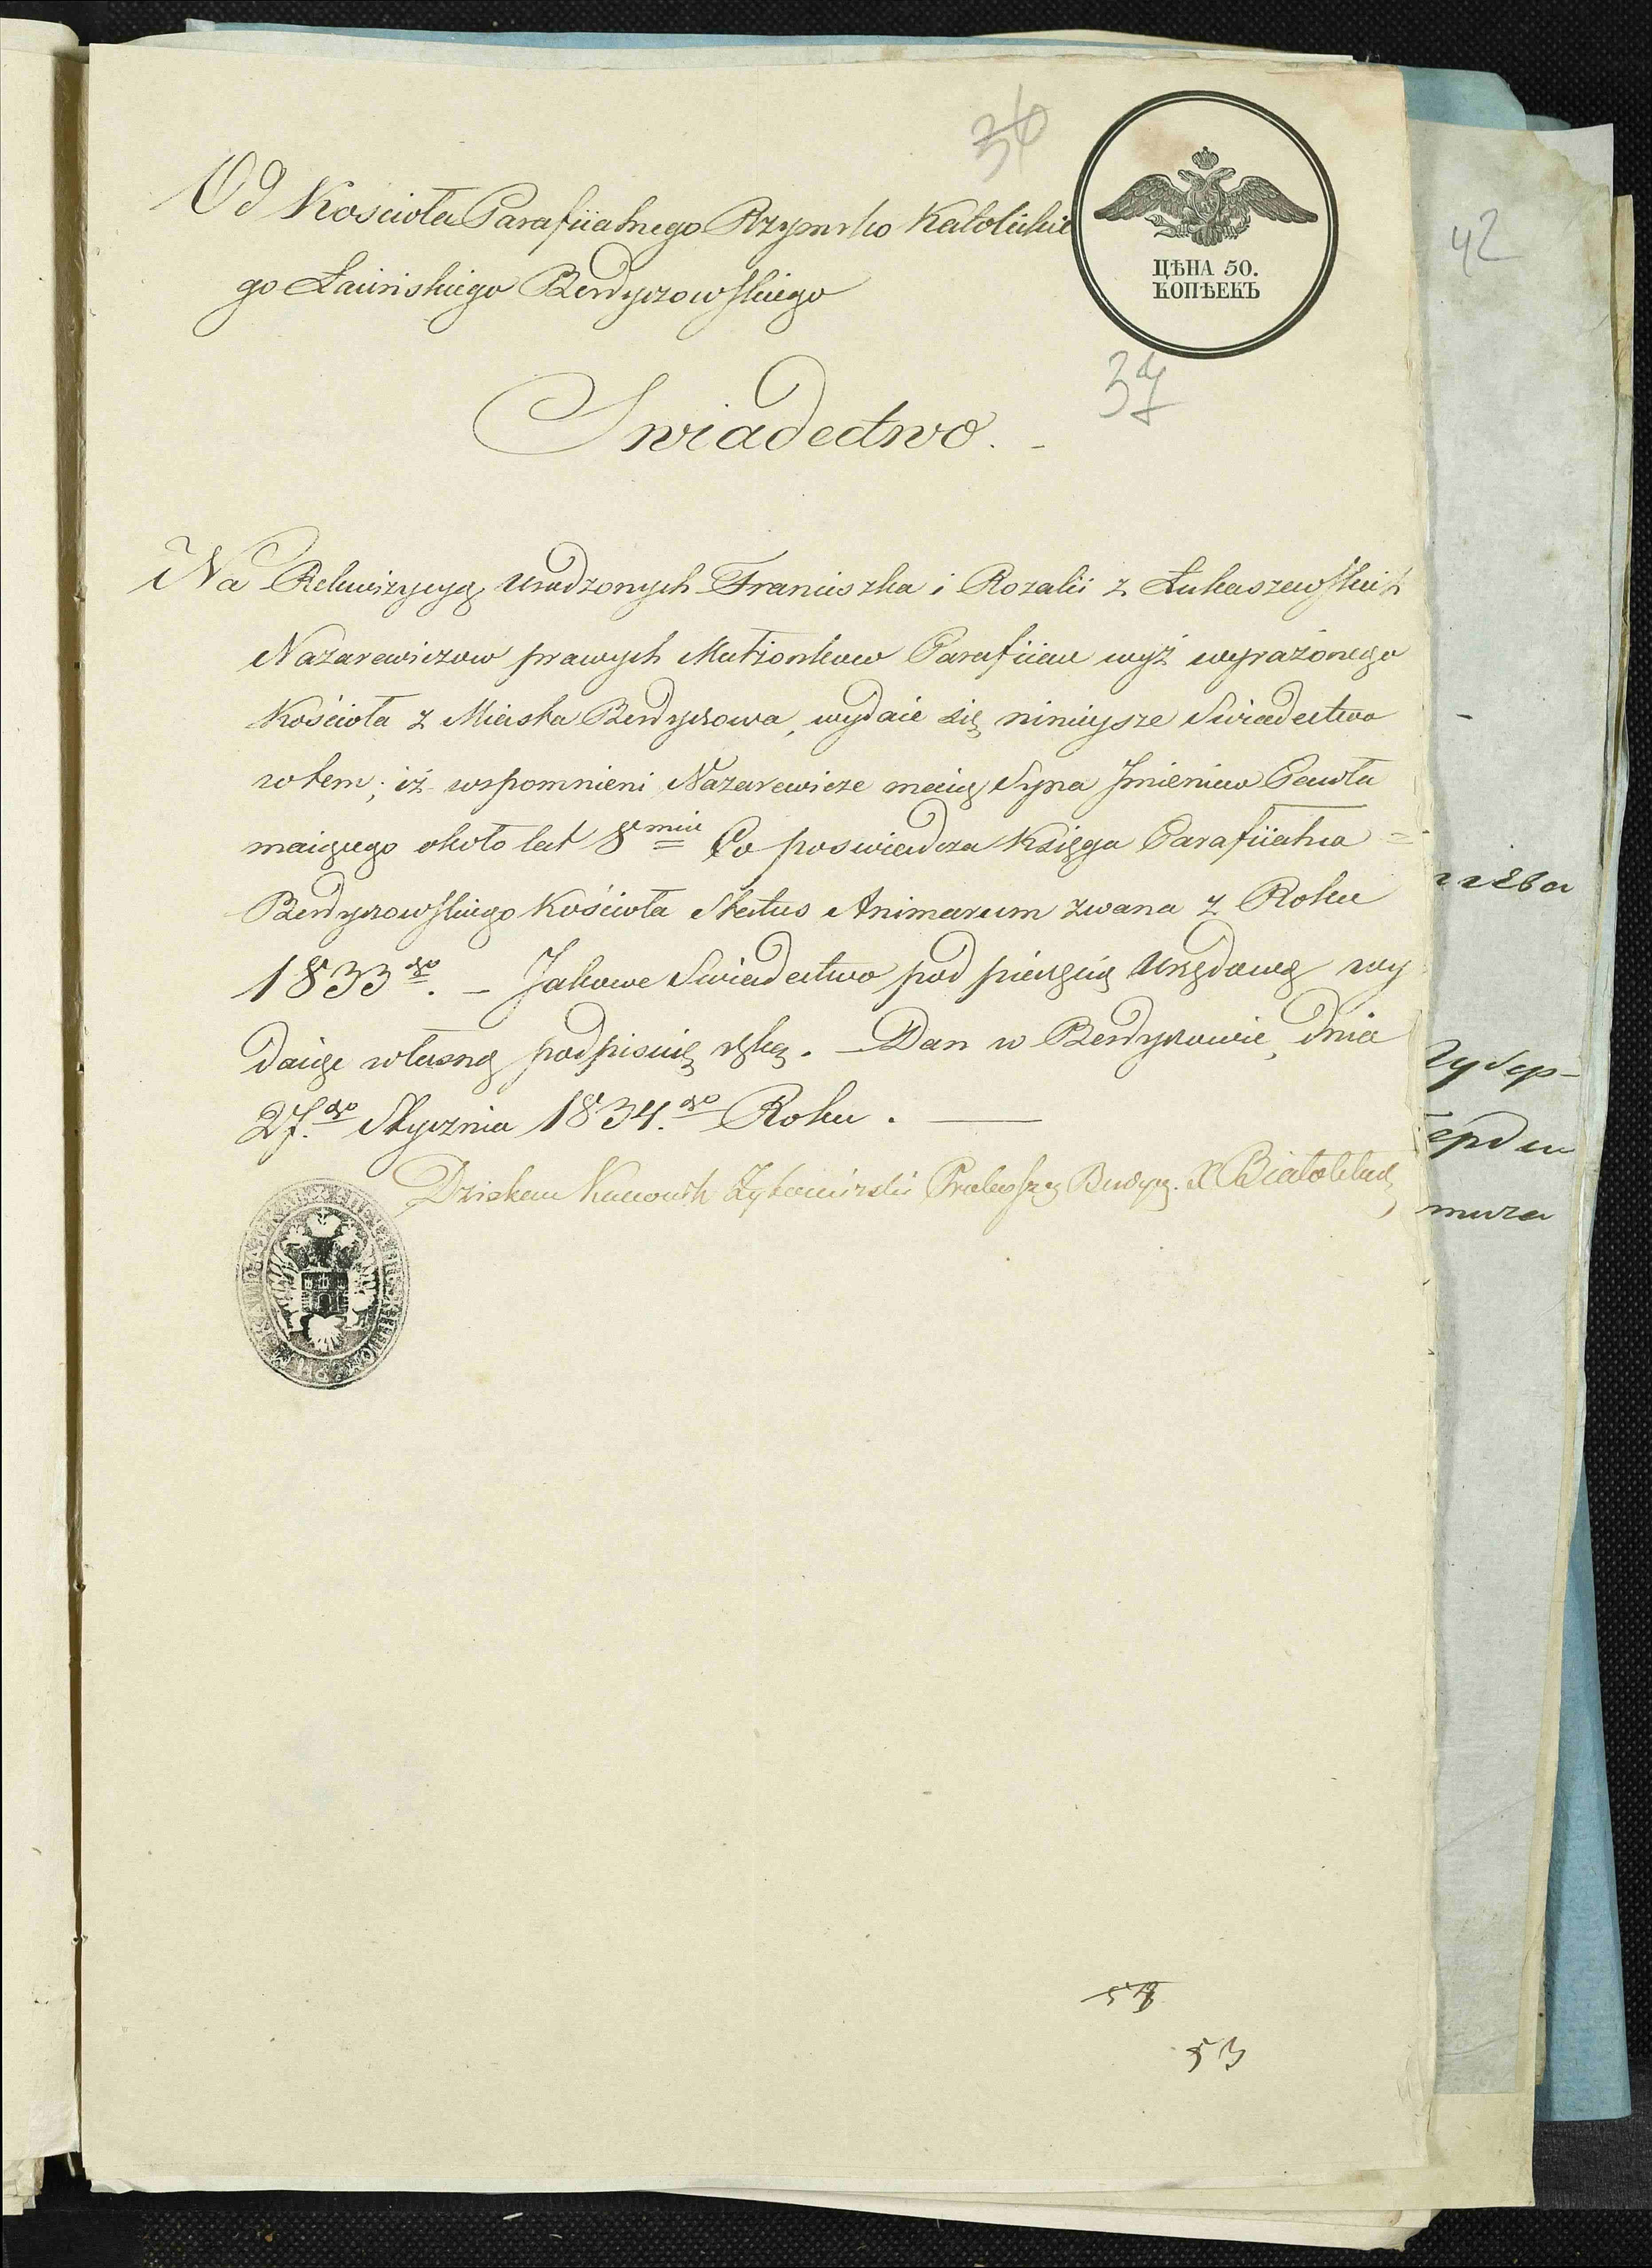 36
Od Kościoła Parafiialnego Rzymsko Katolickie
go Łacińskiego Berdyczowskiego
ЦѢНА 50.
КОПѢЕКЪ
42
37
Swiadectwo. -
Na Rekwizycyą Urodzonych Franciszka i Rozalii z Łukaszewskich
Nazarewiczow prawych Małżonkow Parafiian wyż wyrażonego
Kościoła z Miasta Berdyczowa, wydaie się ninieysze Swiadectwo
wtem; iż wspomnieni Nazarewicze maią Syna Jmieniem Pawła
maiącego około lat 8miu Co poswiadcza Księga Parafiialna =
Berdyczowskiego Kościoła Status Animarum zwana z Roku
1833go. - Jakowe Swiadectwo pod pieczęcią Urzędową wy
daiąc własną podpisuię ręką. - Dan w Berdyczowie, dnia
27.go Stycznia 1834.go Roku. —
Dziekan Kanonik Żytomirski Berdycz. X Białobłocki
53